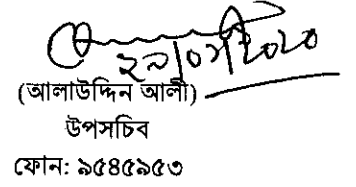 ২৯/০৭/২০২০
(আলাউদ্দিন আলী)
উপসচিব
ফোন: ৯৫৪৫৯৫৩